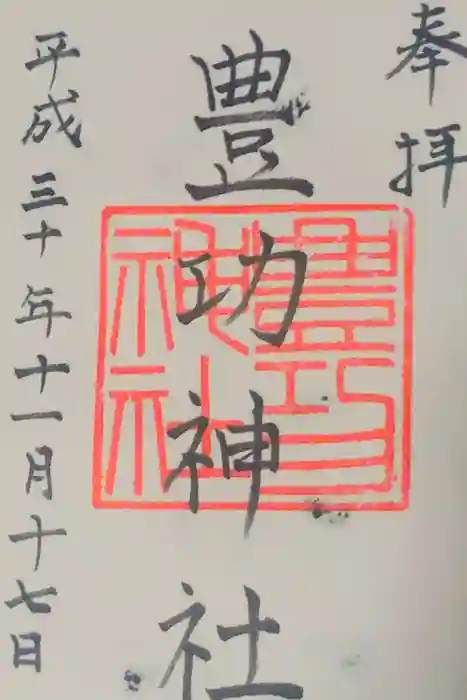 奉拝
豊功神社
豊功神社
平成三十年十一月十七日